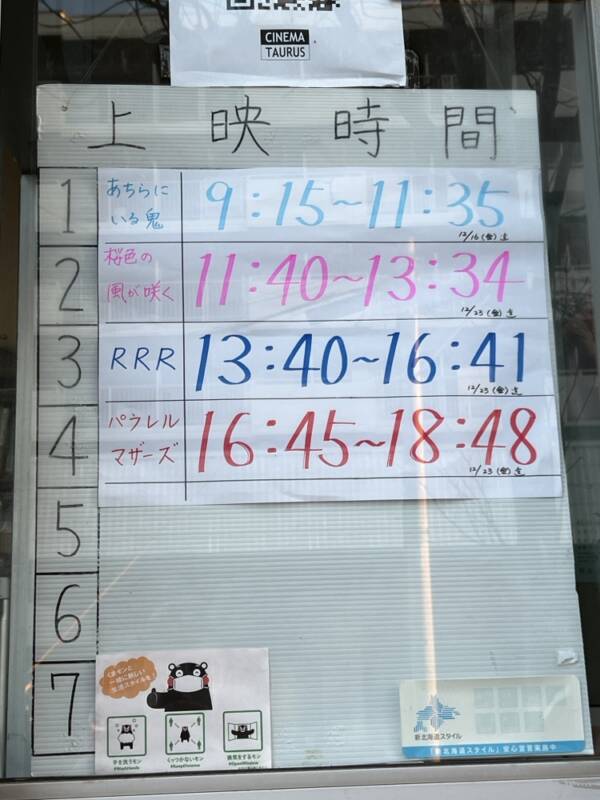 CINEMA
TAURUS
上映時間
1
あちらに
いる鬼
9:15~11:35
12/16(金)迄
2
桜色の
風が咲く
11:40~13:34
12/23(金)迄
3
RRR
13:40~16:41
12/23(金)迄
4
パラレル
マザーズ
16:45~18:48
12/23(金)迄
5
6
7
くまモンと
一緒に新しい
生活スタイルを!
手を洗うモン
#WashHands
くっつかないモン
#KeepDistance
換気をするモン
#OpenWindow
新北海道スタイル
「新北海道スタイル」安心宣言実施中